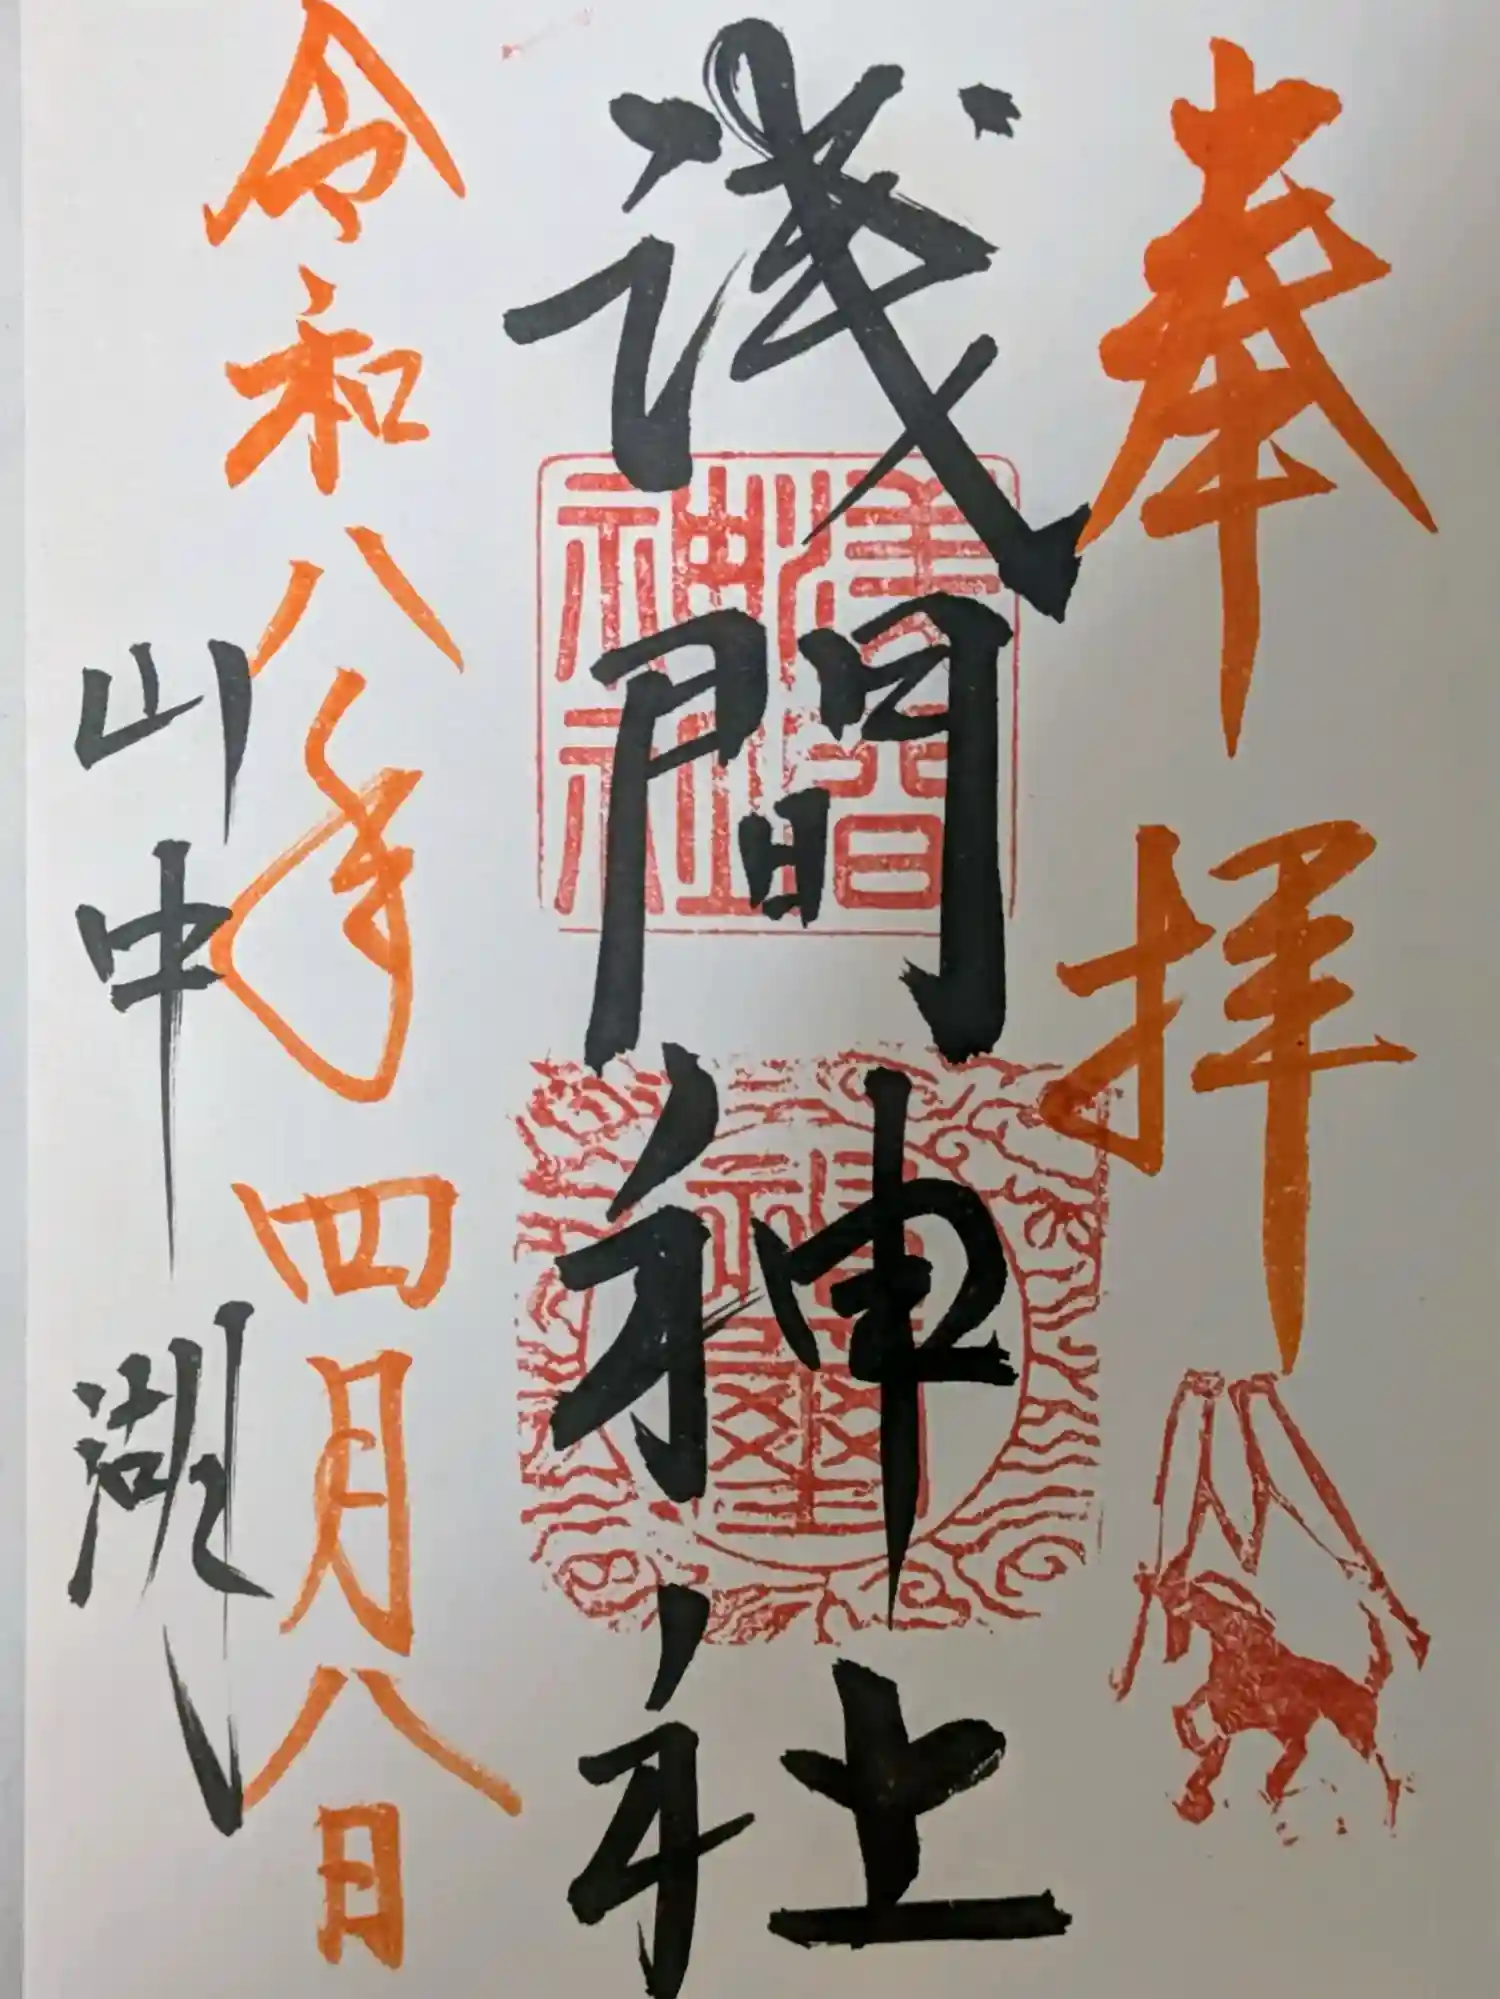 奉拝
浅間神社
浅間神社
令和八年四月八日
山中湖